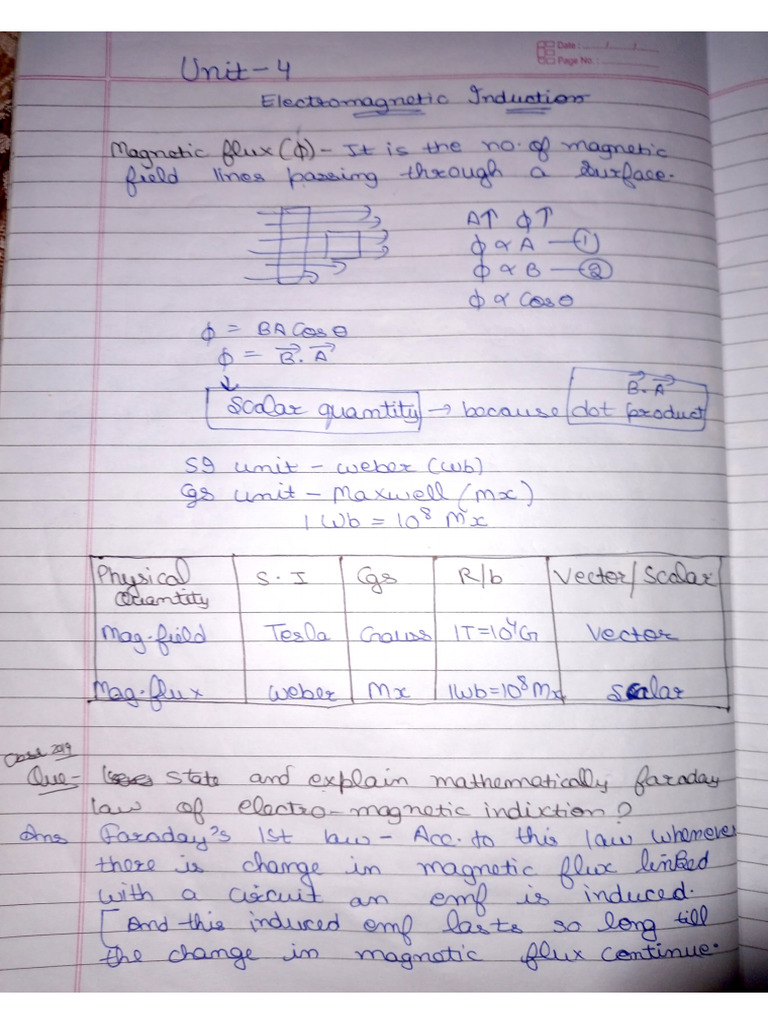 Date : ....../....../......
Page No. : ..................
Unit - 4
Electromagnetic Induction
Magnetic flux (ϕ) - It is the no. of magnetic
field lines passing through a surface.
A↑ ϕ↑
ϕ ∝ A — ①
ϕ ∝ B — ②
ϕ ∝ Cosθ
ϕ = BACosθ
ϕ = B⃗. A⃗
↓
Scalar quantity → because dot product
B⃗. A⃗
SI unit - weber (wb)
Cgs unit - Maxwell (mx)
1 Wb = 10⁸ Mx
Physical Quantity | S.I | Cgs | R/b | Vector/Scalar
Mag. field | Tesla | Gauss | 1T=10⁴G | Vector
Mag. flux | weber | Mx | 1Wb=10⁸Mx | Scalar
2019
Que - State and explain mathematically faraday
law of electro-magnetic indiction?
Ans Faraday's 1st law - Acc. to this law whenever
there is change in magnetic flux linked
with a circuit an emf is induced.
[And this induced emf lasts so long till
the change in magnetic flux continue.